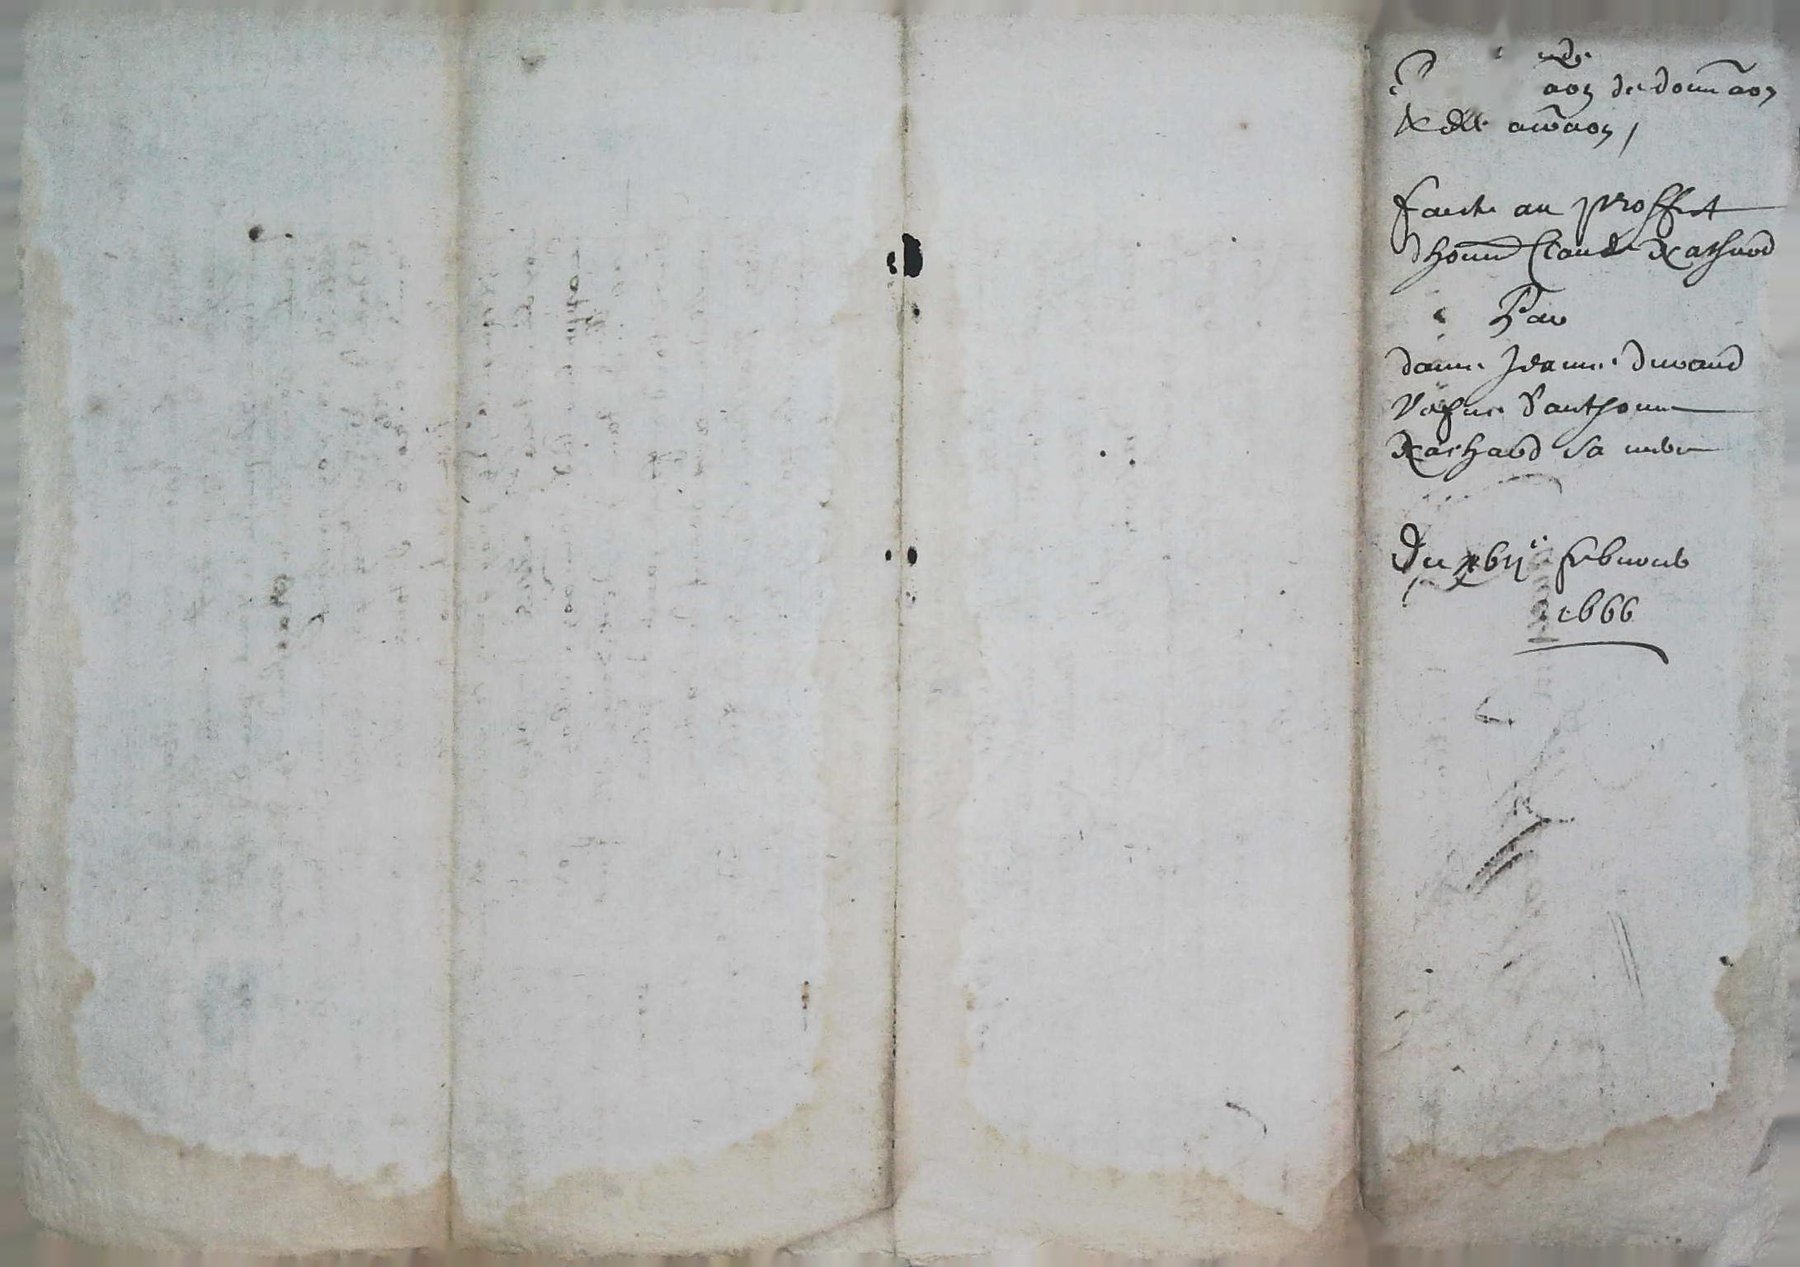 aoñ de donnaoñ
faicte au proffict
dhonn Claude Rachaud
Par
dame Jeanne Durand
Vefue d'anthoine
Rachaud sa mere
Du xbijᵉ febvrier
1666